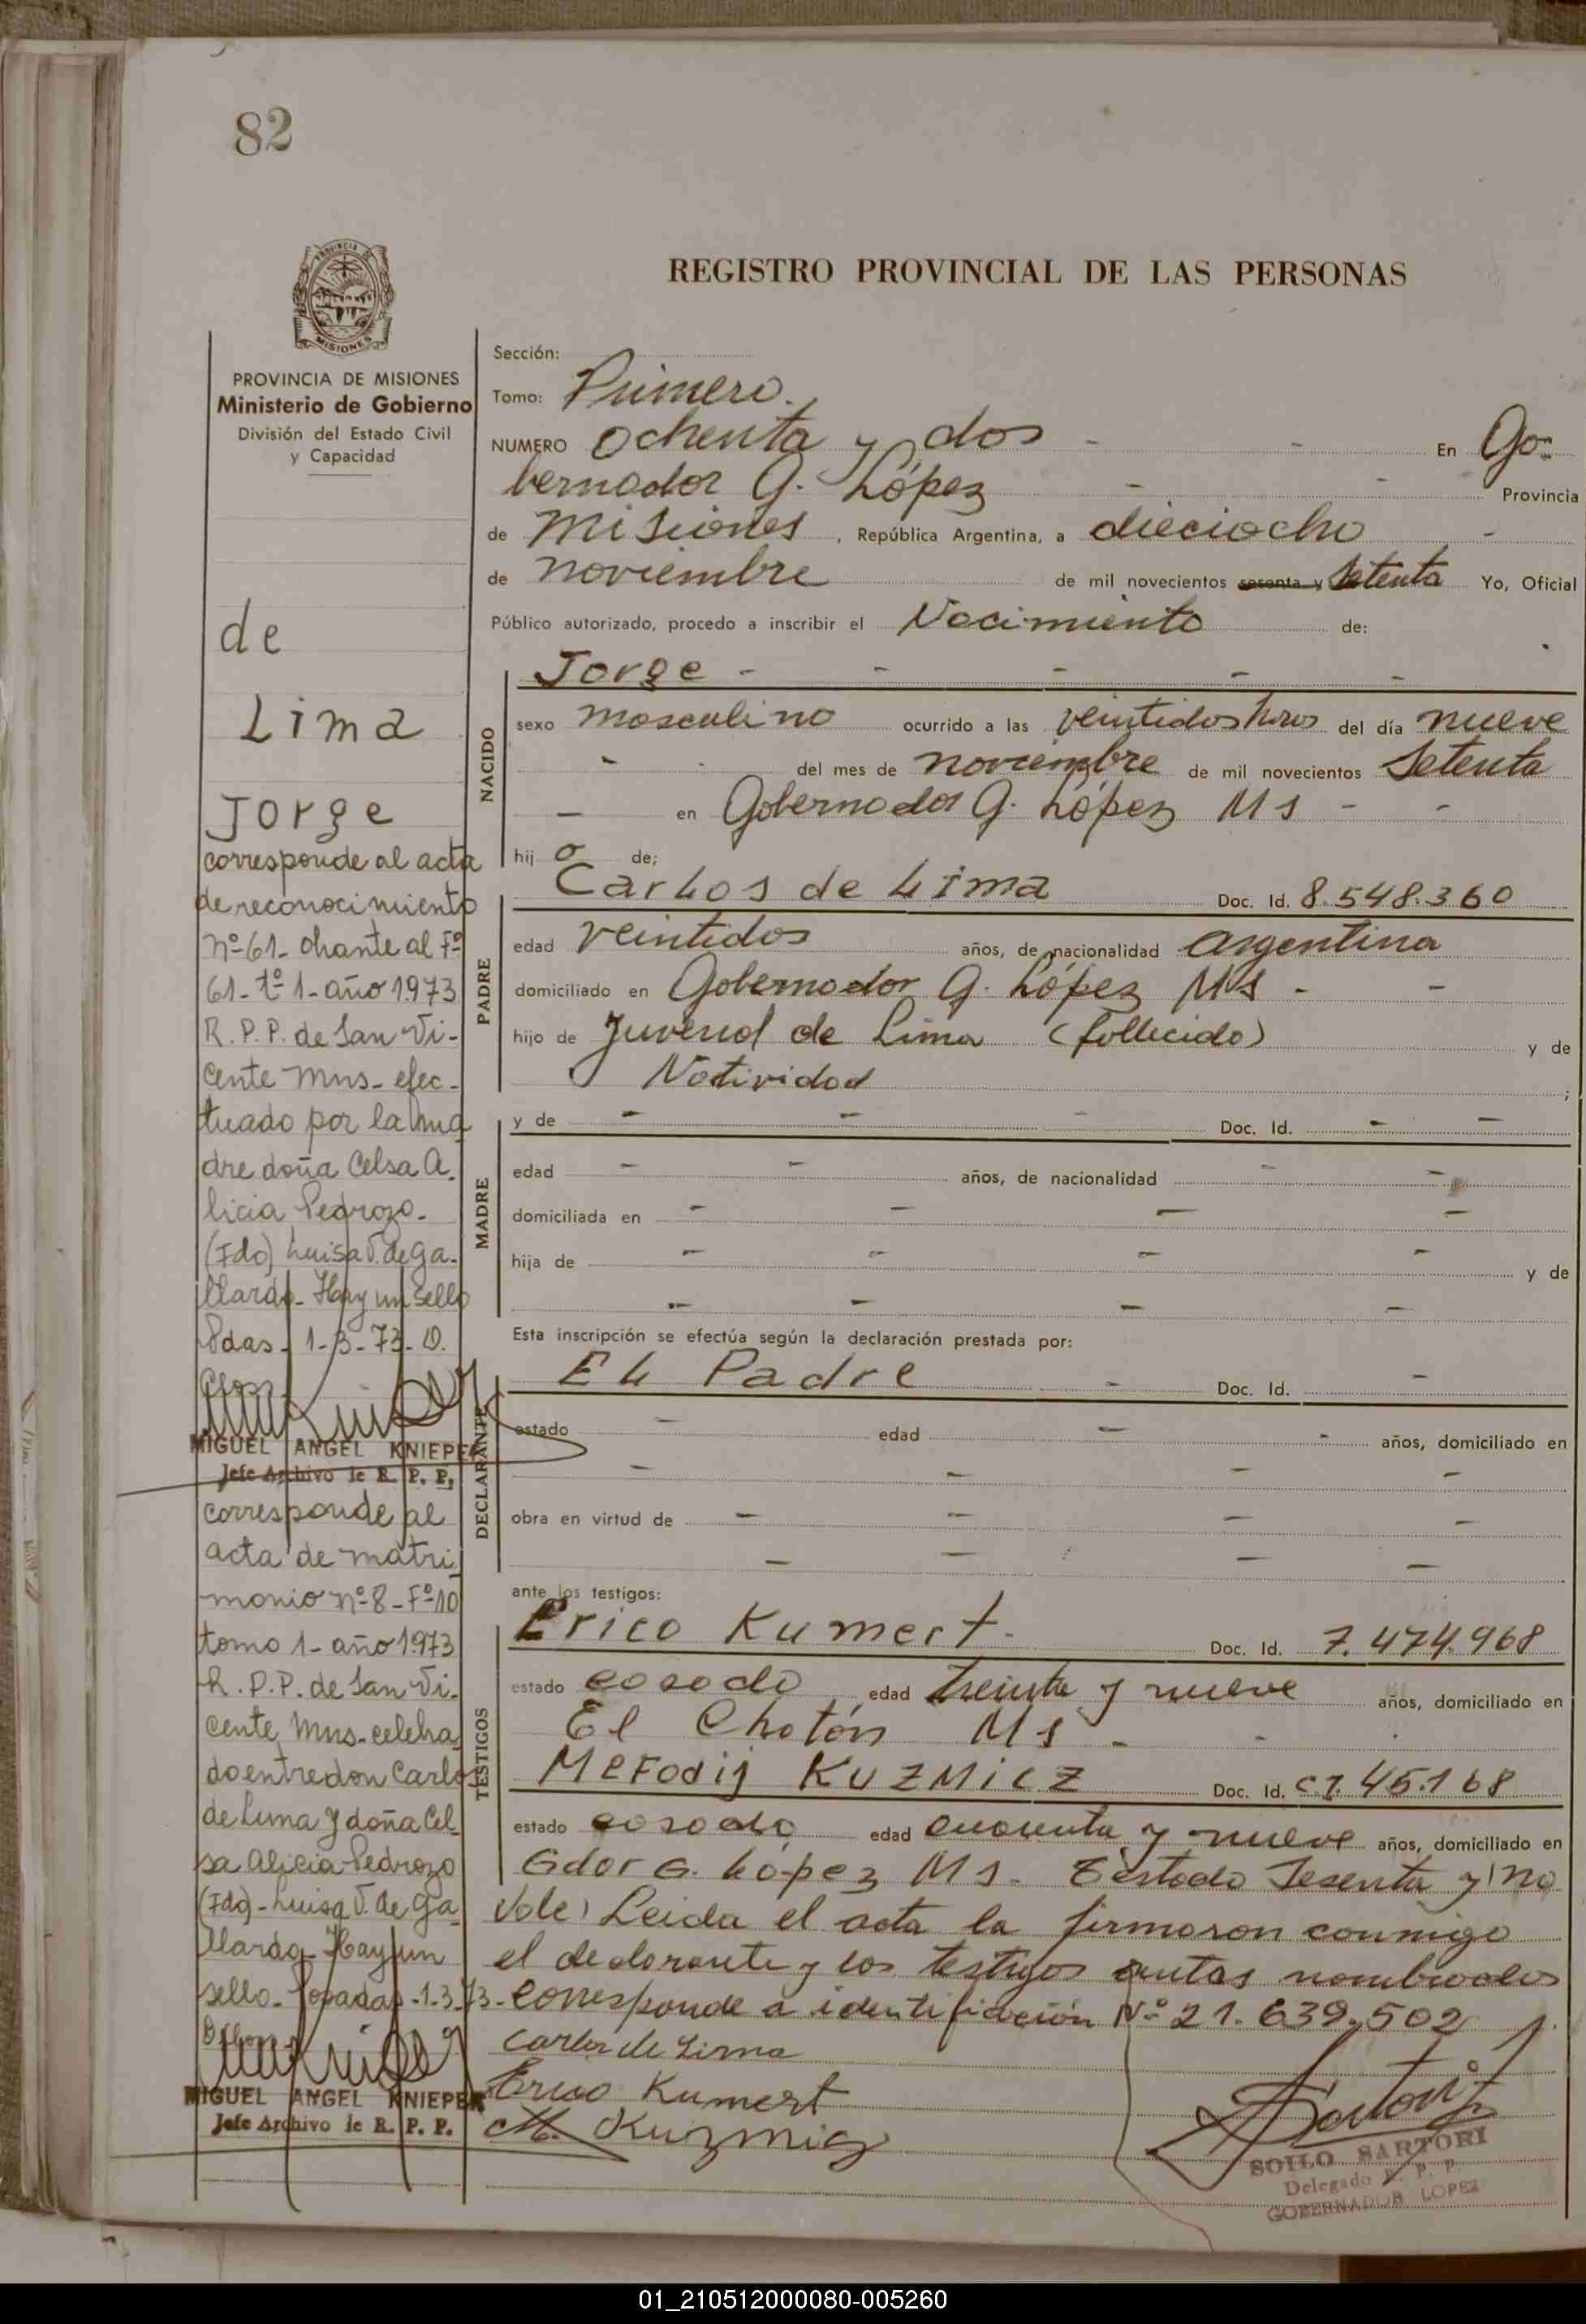 82
PROVINCIA DE
MISIONES
PROVINCIA DE MISIONES
Ministerio de Gobierno
División del Estado Civil
y Capacidad
de
Lima
Jorge
corresponde al acta
de reconocimiento
Nº 61- obrante al Fº
61- tº 1- año 1973
R. P. P. de San Vi-
cente Mns- efec-
tuado por la ma
dre doña Celsa A.
licia Pedrozo.
(Fdo) Luisa V. de Ga-
llardo- Hay un sello
Pdas- 1-3-73-
MIGUEL ANGEL KNIEPER
Jefe Archivo de R. P. P.
corresponde al
acta de matri
monio nº 8- Fº 10
tomo 1- año 1973
R. P. P. de San Vi-
cente, Mns- celebra
do entre don Carlos
de Lima y doña Cel
sa Alicia Pedrozo
(Fdo)- Luisa V. de Ga
llardo- Hay un
sello- Posadas-1-3-73-
MIGUEL ANGEL KNIEPER
Jefe Archivo de R. P. P.
REGISTRO PROVINCIAL DE LAS PERSONAS
Sección:
Tomo: Primero.
NUMERO Ochenta y dos - - En Go-
bernador G. López - - Provincia
de Misiones, República Argentina, a dieciocho -
de noviembre de mil novecientos sesenta y Setenta Yo, Oficial
Público autorizado, procedo a inscribir el Nacimiento de:
Jorge - - - - -
NACIDO
sexo masculino ocurrido a las veintidos horas del día nueve
- - del mes de noviembre de mil novecientos Setenta
- en Gobernador G. López Ms - -
hij o de;
PADRE
Carlos de Lima Doc. Id. 8.548.360
edad veintidos años, de nacionalidad argentina
domiciliado en Gobernador G. López Ms - -
hijo de Juvenal de Lima (fallecido) y de
Natividad ;
MADRE
y de - - - Doc. Id. - -
edad - - años, de nacionalidad - -
domiciliada en - - - -
hija de - - - - y de
- - - -
Esta inscripción se efectúa según la declaración prestada por:
DECLARANTE
El Padre - Doc. Id. -
estado - edad - - años, domiciliado en
- - - -
obra en virtud de - - - -
- - - -
ante los testigos:
TESTIGOS
Erico Kumert - Doc. Id. 7.474.968
estado casado edad treinta y nueve años, domiciliado en
El Chatón Ms - - -
Mefodij Kuzmicz Doc. Id. C.I. 45.168
estado casado edad cuarenta y nueve años, domiciliado en
Gdor G. López Ms. Testado Sesenta y no
vale) Leida el acta la firmaron conmigo
el declarante y los testigos antes nombrados
Corresponde a identificación Nº 21.639.502
Carlos de Lima
Erico Kumert
M. Kuzmicz
SOILO SARTORI
Delegado R. P. P.
GOBERNADOR LOPEZ
01_210512000080-005260